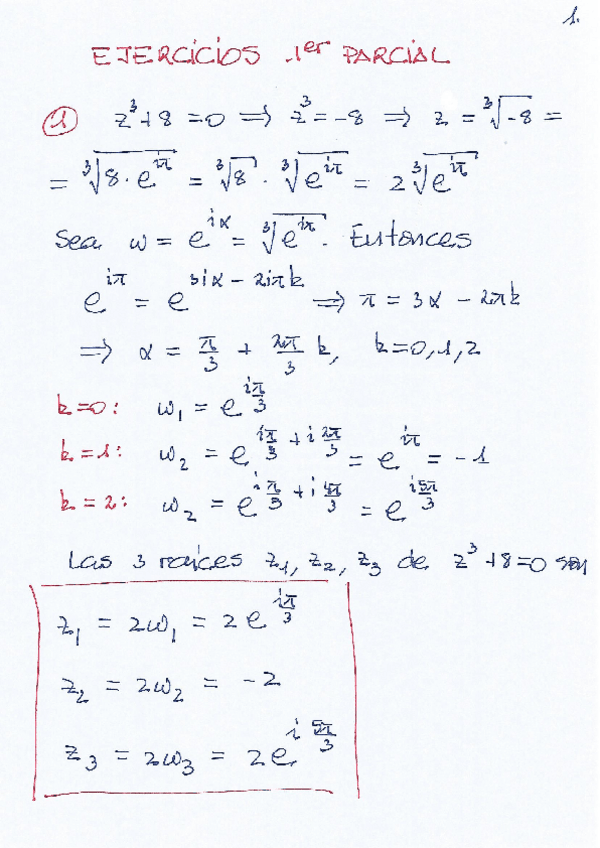 1.
EJERCICIOS 1er PARCIAL
① z³+8=0 ⟹ z³=-8 ⟹ z = ∛-8 =
= ∛(8·e^{iπ}) = ∛8 · ∛(e^{iπ}) = 2∛(e^{iπ})
Sea w = e^{iα} = ∛(e^{iπ}). Entonces
e^{iπ} = e^{3iα - 2iπk} ⟹ π = 3α - 2πk
⟹ α = π/3 + 2π/3 k, k=0,1,2
k=0: w₁ = e^{iπ/3}
k=1: w₂ = e^{iπ/3 + i2π/3} = e^{iπ} = -1
k=2: w₂ = e^{iπ/3 + i4π/3} = e^{i5π/3}
Las 3 raíces z₁, z₂, z₃ de z³+8=0 son
z₁ = 2w₁ = 2e^{iπ/3}
z₂ = 2w₂ = -2
z₃ = 2w₃ = 2e^{i5π/3}